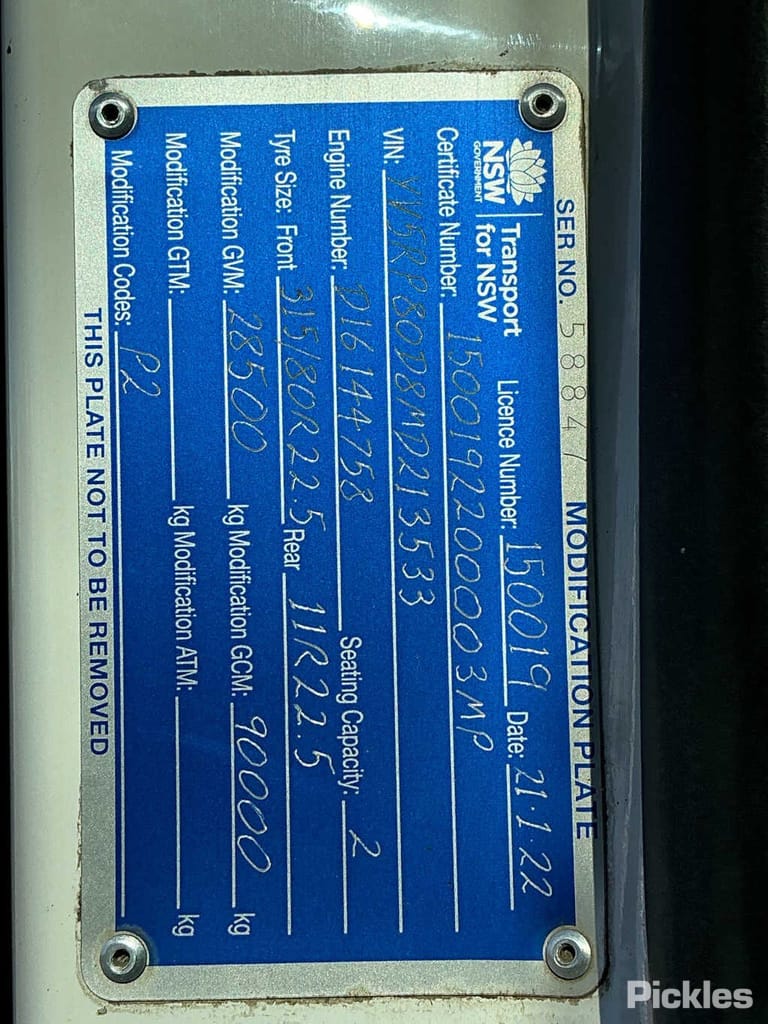 SER NO. 58847 MODIFICATION PLATE
NSW GOVERNMENT Transport for NSW Licence Number: 150019 Date: 21.1.22
Certificate Number: 1500192200003MP
VIN: YV5RP80D8MD213533
Engine Number: D16144758 Seating Capacity: 2
Tyre Size: Front 315/80R22.5 Rear 11R22.5
Modification GVM: 28500 kg Modification GCM: 90000 kg
Modification GTM: kg Modification ATM: kg
Modification Codes: P2
THIS PLATE NOT TO BE REMOVED
Pickles